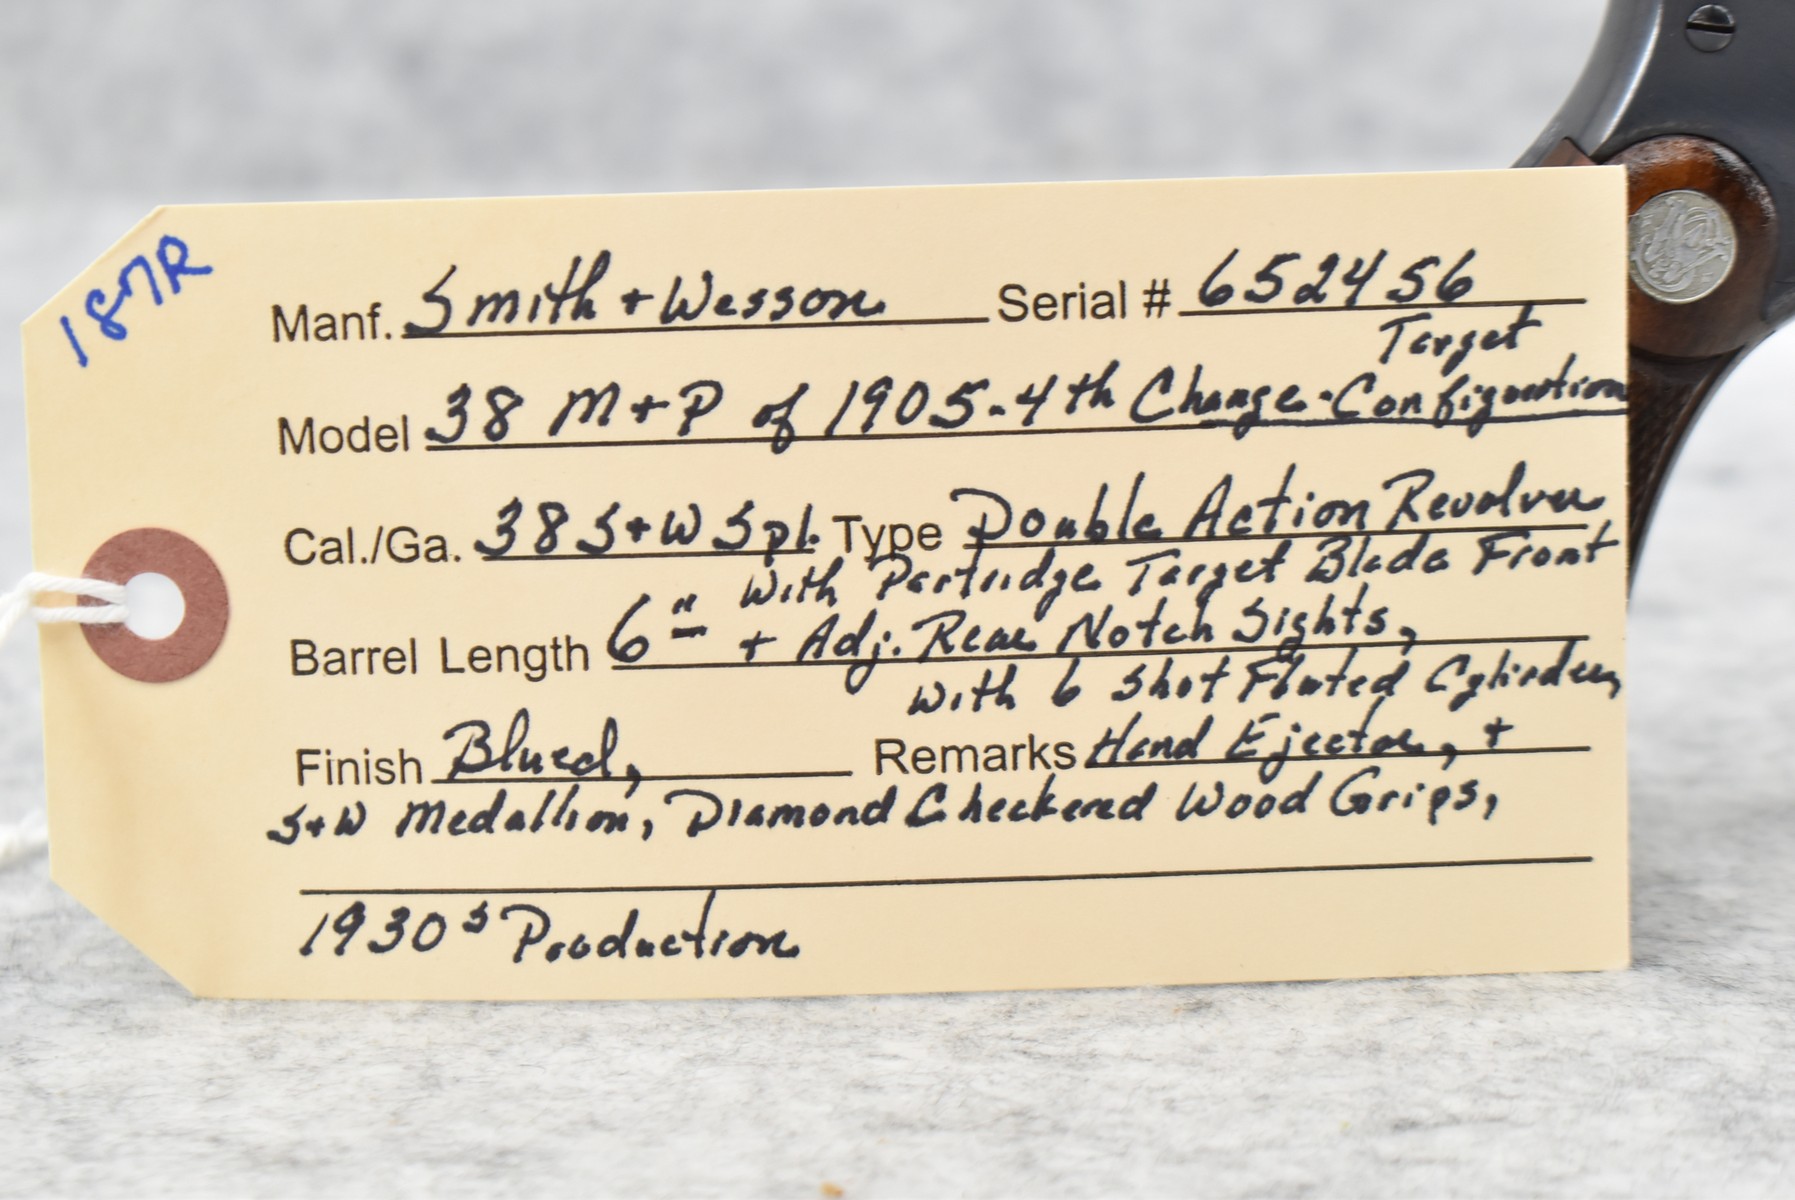 187R
Manf. Smith + Wesson Serial # 652456
Target
Model 38 M+P of 1905-4th Change-Configuration
Cal./Ga. 38 S+W Spl. Type Double Action Revolver
With Partridge Target Blade Front
Barrel Length 6" + Adj. Rear Notch Sights,
with 6 Shot Fluted Cylinder,
Finish Blued, Remarks Hand Ejector, +
S+W Medallion, Diamond Checkered Wood Grips,
1930s Production